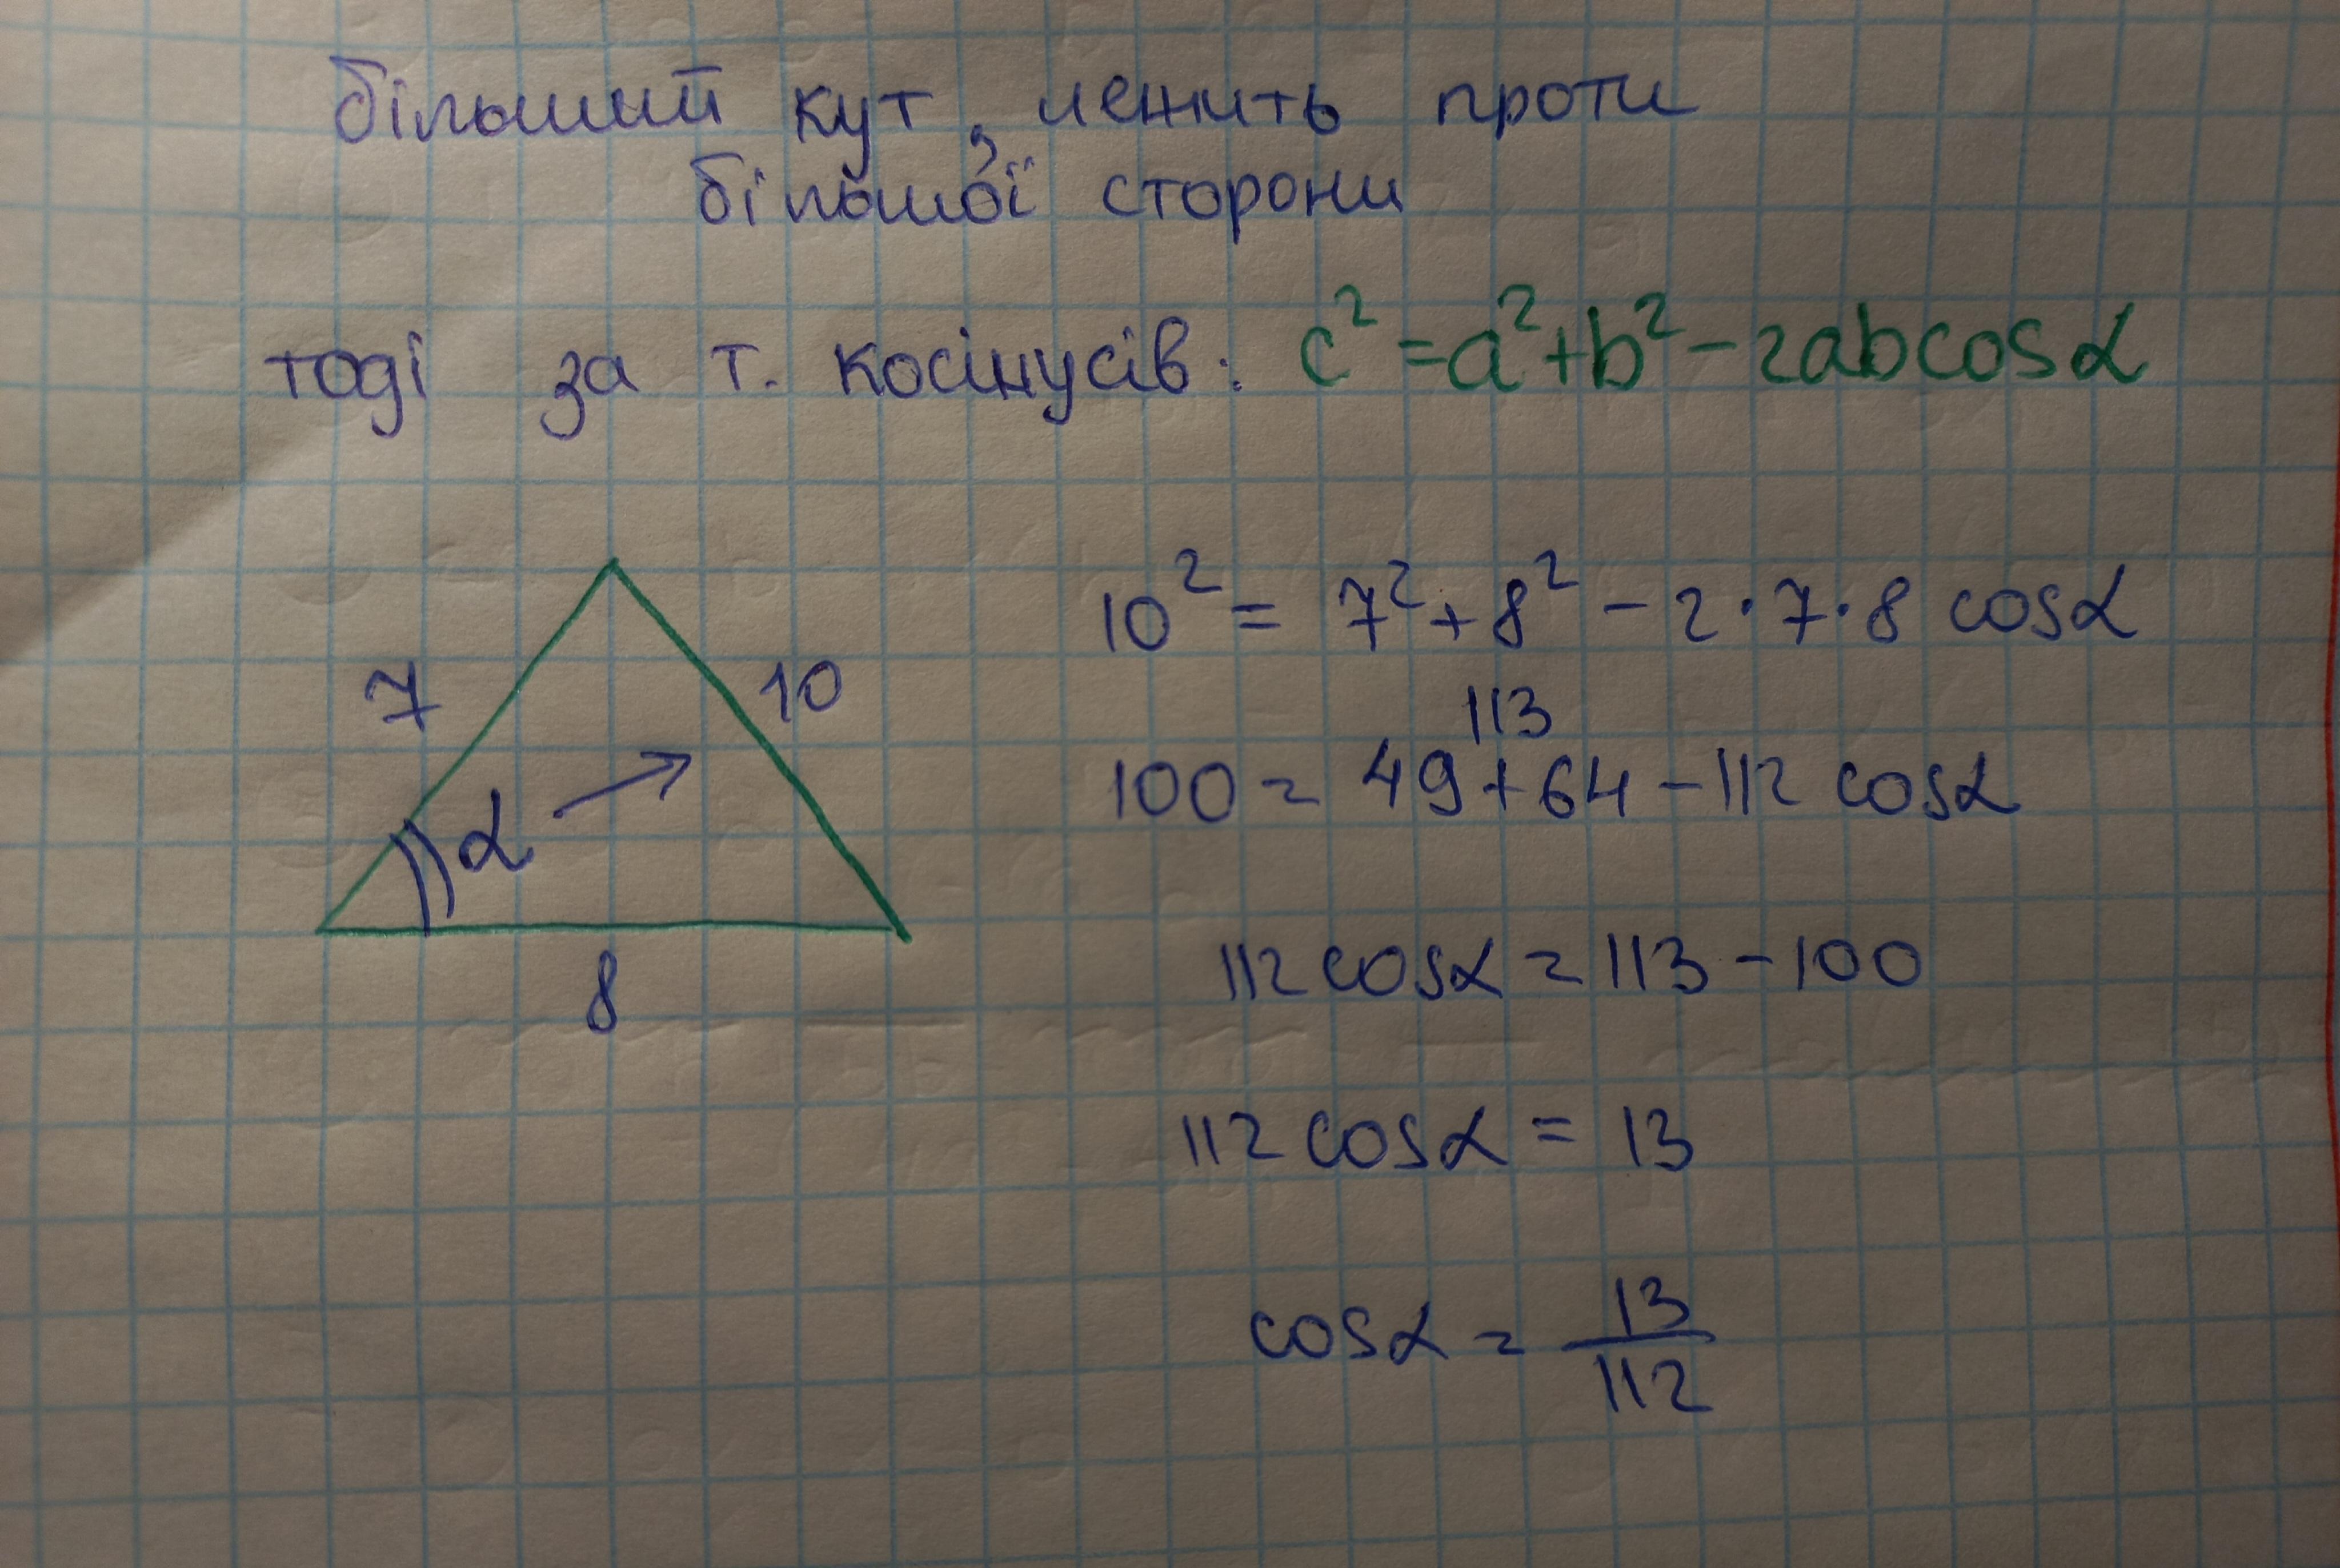 більший кут, лежить проти
більшої сторони
тоді за т. косінусів: c² = a² + b² − 2ab cos α
7
10
α
8
10² = 7² + 8² − 2·7·8 cos α
113
100 = 49 + 64 − 112 cos α
112 cos α = 113 − 100
112 cos α = 13
cos α = 13/112